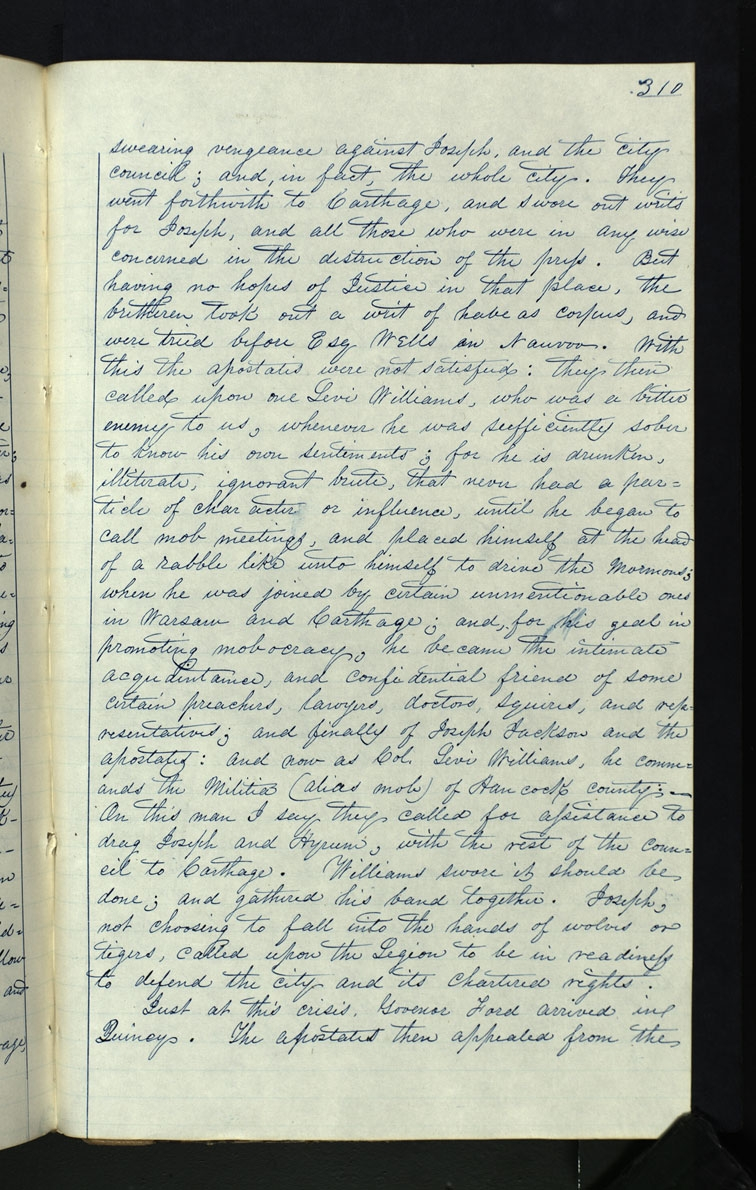 310
swearing vengeance against Joseph, and the city
council; and, in fact, the whole city. They
went forthwith to Carthage, and swore out writs
for Joseph, and all those who were in any wise
concerned in the distruction of the press. But
having no hopes of Justice in that place, the
bretheren took out a writ of habeas corpus, and
were tried before Esq Wells in Nauvoo. With
this the apostates were not satisfied: they then
called upon one Levi Williams, who was a bitter
enemy to us, whenever he was sufficiently sober
to know his own sentiments; for he is drunken,
illiterate, ignorant brute, that never had a par=
ticle of character or influence, until he began to
call mob meetings, and placed himself at the head
of a rabble like unto himself to drive the Mormons;
when he was joined by certain unmentionable ones
in Warsaw and Carthage; and, for his zeal in
promoting mobocracy, he became the intimate
acquaintance, and confidential friend of some
certain preachers, lawyers, doctors, squires, and rep=
resentatives; and finally of Joseph Jackson and the
apostates: and now as Col. Levi Williams, he comm=
ands the Militia (alias mob) of Hancock county;—
On this man I say they called for assistance to
drag Joseph and Hyrum, with the rest of the coun=
cil to Carthage. Williams swore it should be
done; and gathered his band together. Joseph,
not choosing to fall into the hands of wolves or
tigers, called upon the Legion to be in readiness
to defend the city and its chartered rights.
Just at this crisis, Govenor Ford arrived in
Quincy. The apostates then appealed from the